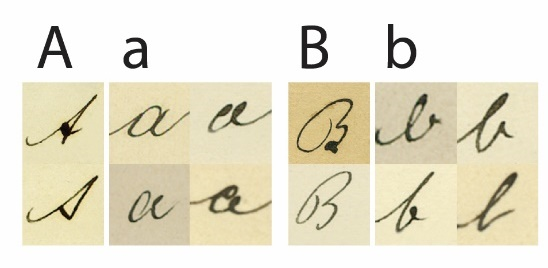 A a B b
A a a B b b
A a a B b b